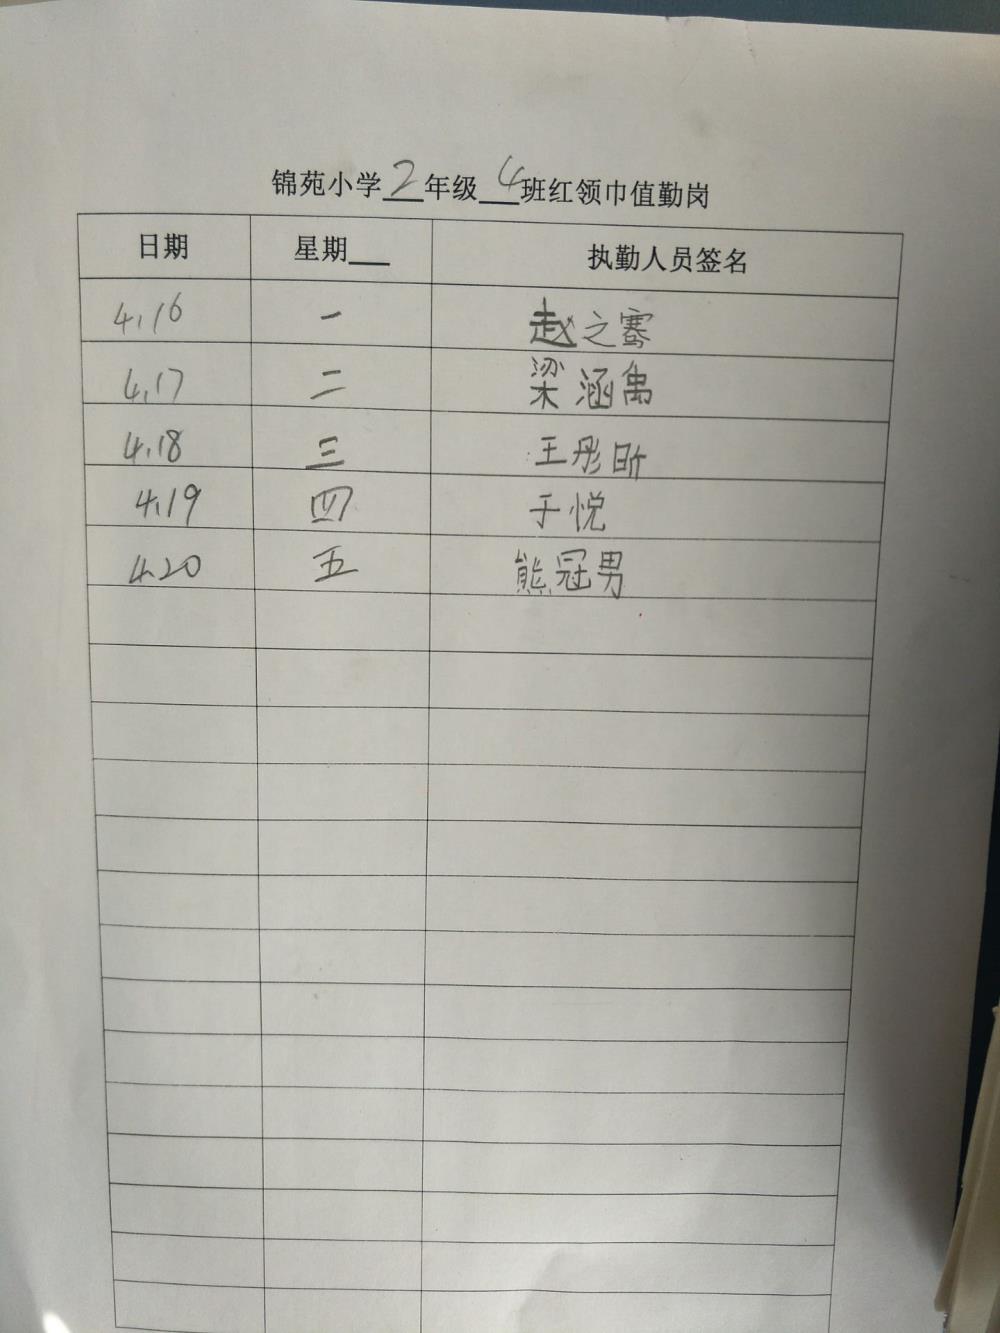 锦苑小学2年级4班红领巾值勤岗
日期 星期 执勤人员签名
4.16 一 赵之骞
4.17 二 梁涵禹
4.18 三 王彤昕
4.19 四 于悦
4.20 五 熊冠男